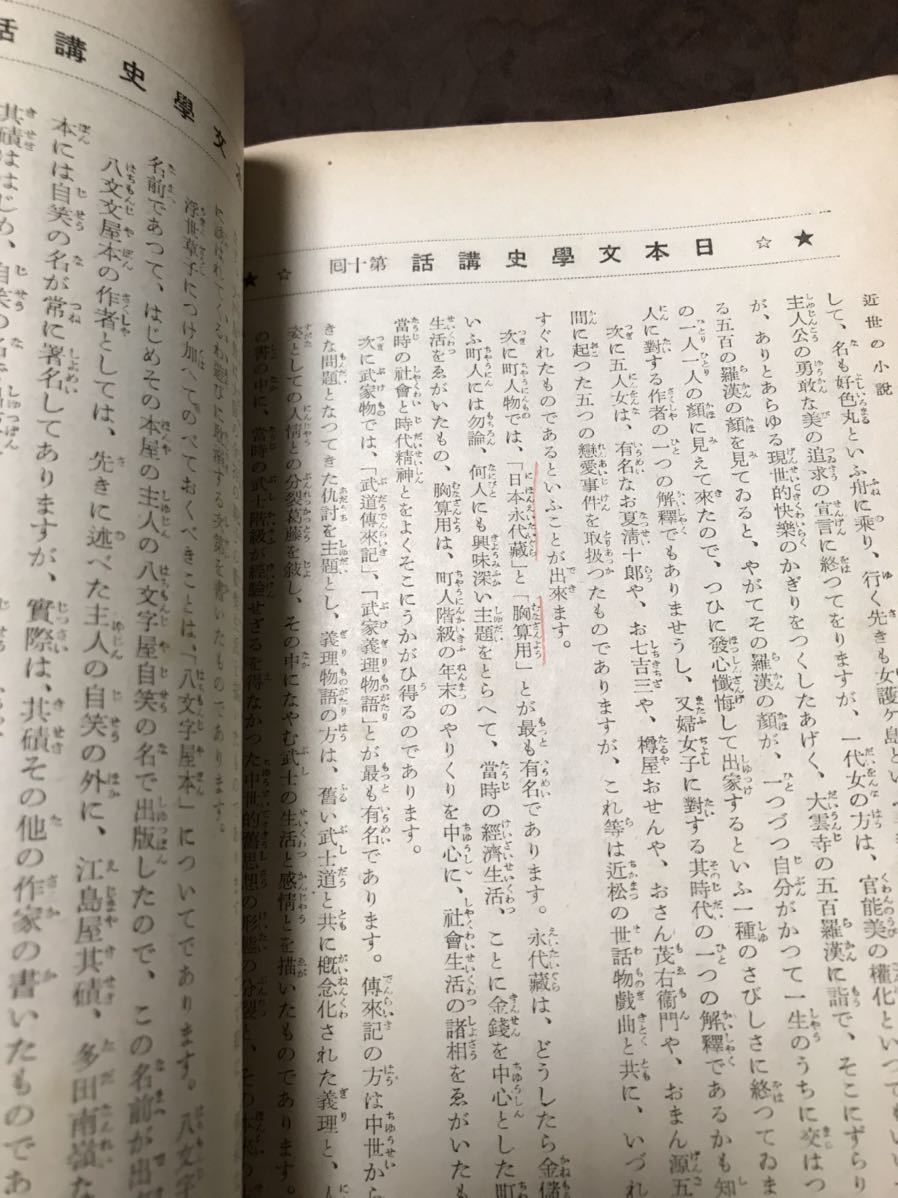 ★ ☆ 日本文學史講話 第十囘 ☆ ★
近世の小説
して、名も好色丸といふ舟に乘り、行く先きも女護ケ島とい
主人公の勇敢な美の追求の宣言に終つてをりますが、一代女の方は、官能美の權化といつてもい
が、ありとあらゆる現世的快樂のかぎりをつくしたあげく、大雲寺の五百羅漢に詣で、そこにずら
る五百の羅漢の顏を見てゐると、やがてその羅漢の顏が、一つづつ自分がかつて一生のうちに交はつ
の人一人一人の顏に見えて來たので、つひに發心懺悔して出家するといふ一種のさびしさに終つてゐま
人に對する作者の一つの解釋でもありませうし、又婦女子に對する其時代の一つの解釋であるかも知
次に五人女は、有名なお夏淸十郎や、お七吉三や、樽屋おせんや、おさん茂右衞門や、おまん源五
間に起つた五つの戀愛事件を取扱つたものでありますが、これ等は近松の世話物戯曲と共に、いづれ
すぐれたものであるといふことが出來ます。
次に町人物では、「日本永代藏」と「胸算用」とが最も有名であります。永代藏は、どうしたら金儲
いふ町人には勿論、何人にも興味深い主題をとらへて、當時の經濟生活、ことに金錢を中心とした町
生活をゑがいたもの、胸算用は、町人階級の年末のやりくりを中心に、社會生活の諸相をゑがいたも
當時の社會と時代精神とをよくそこにうかがひ得るのであります。
次に武家物では、「武道傳來記」、「武家義理物語」とが最も有名であります。傳來記の方は中世から
きな問題となつてきた仇討を主題とし、義理物語の方は、舊い武士道と共に槪念化された義理と、人
姿としての人情との分裂葛藤を敍し、その中になやむ武士の生活と感情とを描いたものであります。
の書の中に、當時の武士階級が經驗せざるを得なかつた中世的舊思想の形態の分裂と、その
文學史講話
浮世草子につけ加へてのべておくべきことは、「八文字屋本」についてであります。八文字
名前であつて、はじめその本屋の主人の八文字屋自笑の名で出版したので、この名前が出
八文字屋本の作者としては、先きに述べた主人の自笑の外に、江島屋其磧、多田南嶺な
本には自笑の名が常に署名してありますが、實際は、其磧その他の作家の書いたものであ
其磧ははじめ、自笑の名